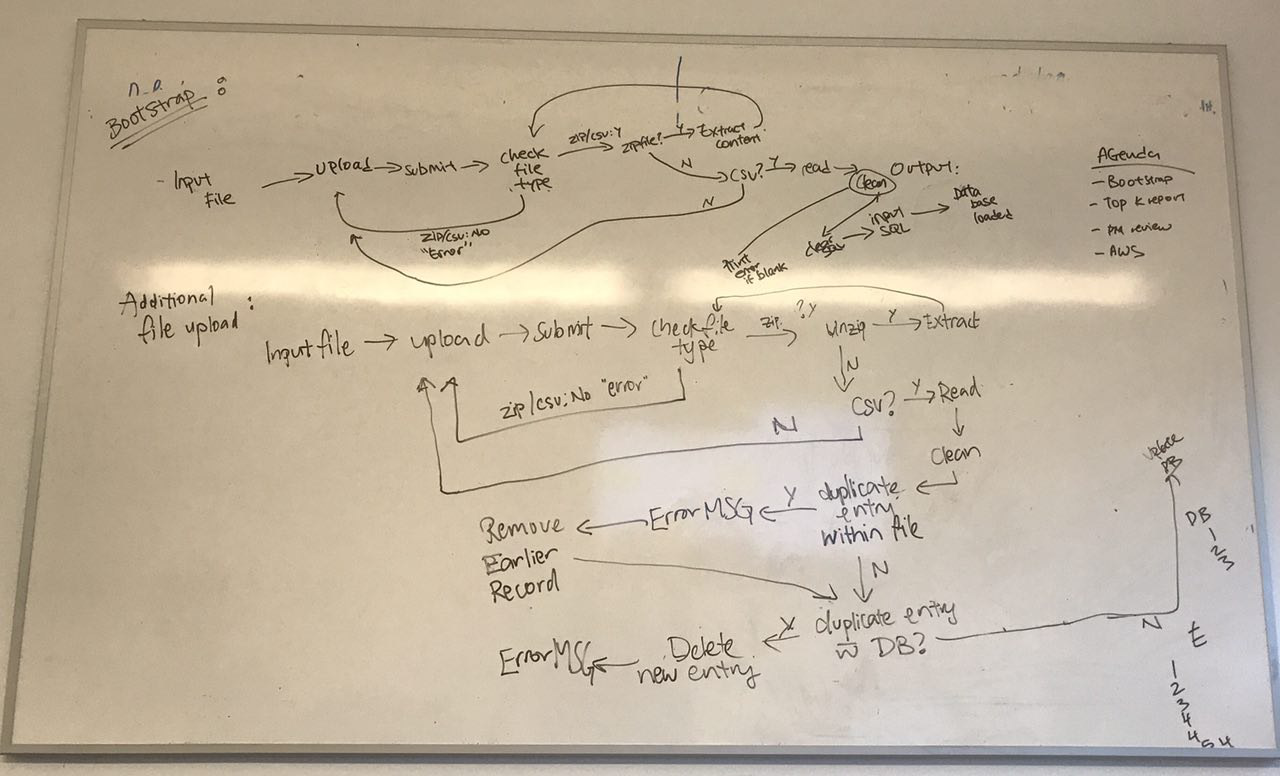 Bootstrap :
Input
File
upload
submit
check
file
type
zip/csv: Y
zipfile?
Y
Extract
content
N
CSV?
Y
read
clean
Output:
N
zip/csv: No
"Error"
Print
error
if blank
input
SQL
Data
base
loaded
AGenda
- Bootstrap
- Top K report
- PM review
- AWS
Additional
file upload :
Input file
upload
Submit
Check file
type
zip
? Y
unzip
Y
Extract
zip/csv: No "error"
N
CSV?
Y
Read
N
Clean
duplicate
entry
within file
Y
Error MSG
Remove
Earlier
Record
N
duplicate entry
w̄ DB?
Y
Delete
new entry
Error MSG
N
Update
DB
DB
1
2
3
t
1
2
3
4
4
5 4